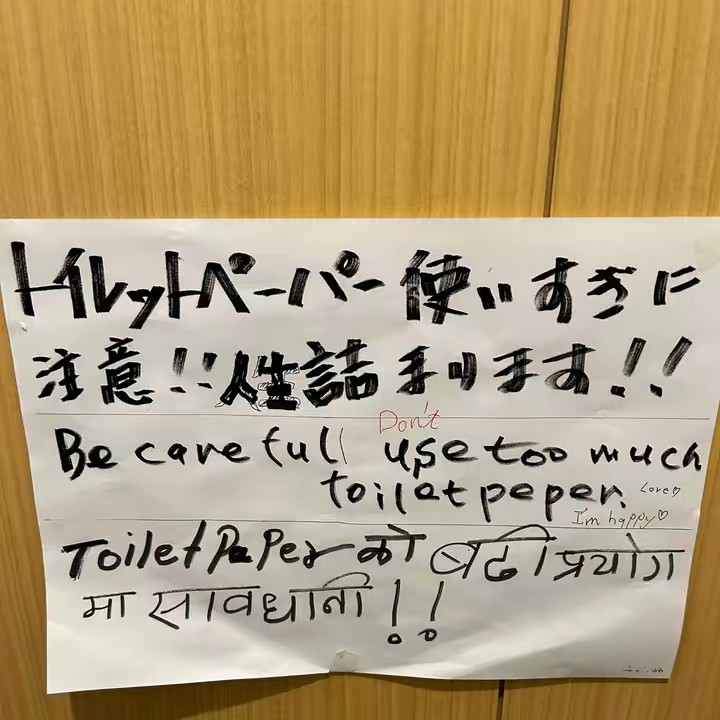 トイレットペーパー使いすぎに
注意!!人生詰まります!!
Don't
Be carefull use too much
toilet peper. Love♡
I'm happy♡
Toilet Paper को बढी प्रयोग
मा सावधानी!!